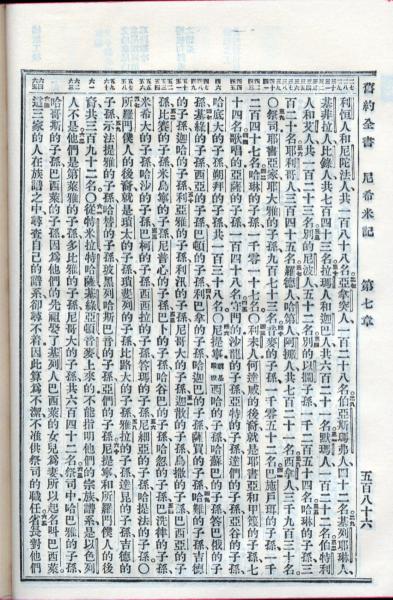 舊約全書 尼希米記 第七章 五百八十六
利恆人和尼陀法人共一百八十八名亞拿突人一百二十八名伯亞斯瑪弗人四十二名基列耶琳人
基非拉人比錄人共七百四十三名拉瑪人和迦巴人共六百二十一名默瑪人一百二十二名伯特利
人和艾人共一百二十三名別的尼波人五十二名別的以攔子孫一千二百五十四名哈琳的子孫三
百二十名耶利哥人三百四十五名羅德人哈第人阿挪人共七百二十一名西拿人三千九百三十名
〇祭司耶書亞家耶大雅的子孫九百七十三名音麥的子孫一千零五十二名巴施戶珥的子孫一千
二百四十七名哈琳的子孫一千零一十七名〇利未人何達威的後裔就是耶書亞和甲篾的子孫七
十四名歌唱的亞薩的子孫一百四十八名守門的沙龍的子孫亞特的子孫達們的子孫亞谷的子孫
哈底大的子孫朔拜的子孫共一百三十八名〇尼提寧西哈的子孫哈蘇巴的子孫答巴俄的子
孫基綠的子孫西亞的子孫巴頓的子孫利巴拿的子孫哈迦巴的子孫薩買的子孫哈難的子孫吉德
的子孫迦哈的子孫利亞雅的子孫利汛的子孫尼哥大的子孫迦散的子孫烏撒的子孫巴西亞的子
孫比賽的子孫米烏寧的子孫尼普心的子孫巴卜的子孫哈古巴的子孫哈忽的子孫巴洗律的子孫
米希大的子孫哈沙的子孫巴柯的子孫西西拉的子孫答瑪的子孫尼細亞的子孫哈提法的子孫〇
所羅門僕人的後裔就是瑣太的子孫瑣斐列的子孫比路大的子孫雅拉的子孫達昆的子孫吉德的
子孫示法提雅的子孫哈替的子孫玻黑列哈斯巴音的子孫亞們的子孫尼提寧和所羅門僕人的後
裔共三百九十二名〇從特米拉特哈薩基綠亞頓音麥上來的不能指明他們的宗族譜系是以色列
人不是他們是第萊雅的子孫多比雅的子孫尼哥大的子孫共六百四十二名祭司中哈巴雅的子孫
哈哥斯的子孫巴西萊的子孫因為他們的先祖娶了基列人巴西萊的女兒為妻所以起名叫巴西萊
這三家的人在族譜之中尋查自己的譜系卻尋不着因此算為不潔不准供祭司的職任省長對他們